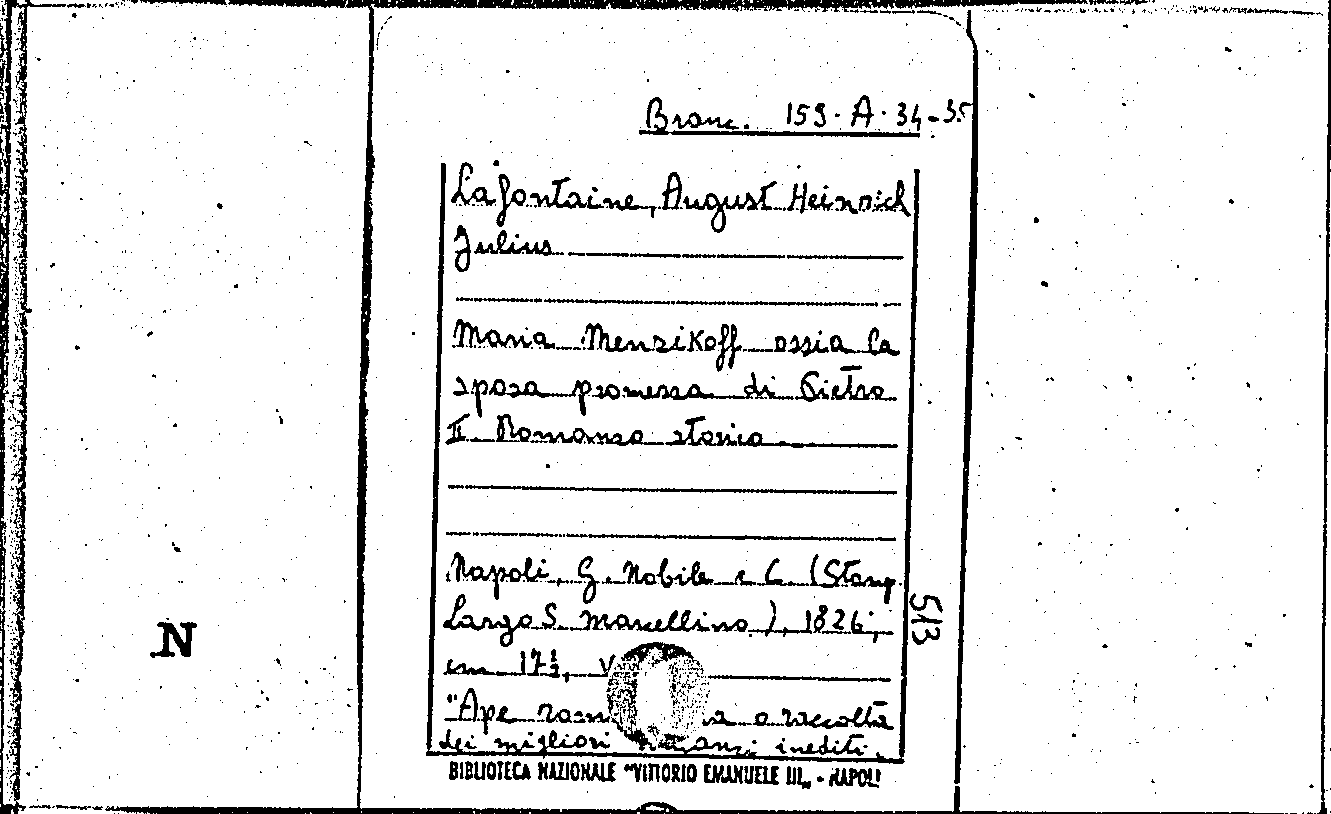 Branc. 159.A.34-35
Lafontaine, August Heinrich
Julius
Maria Menzikoff ossia la
sposa promessa di Pietro
II Romanzo storico
Napoli, G. Nobile e C. (Stamp
Largo S. Marcellino), 1826;
cm 17½, v
"Ape a raccolta
dei migliori inediti.
513
N
BIBLIOTECA NAZIONALE "VITTORIO EMANUELE III„ - NAPOLI